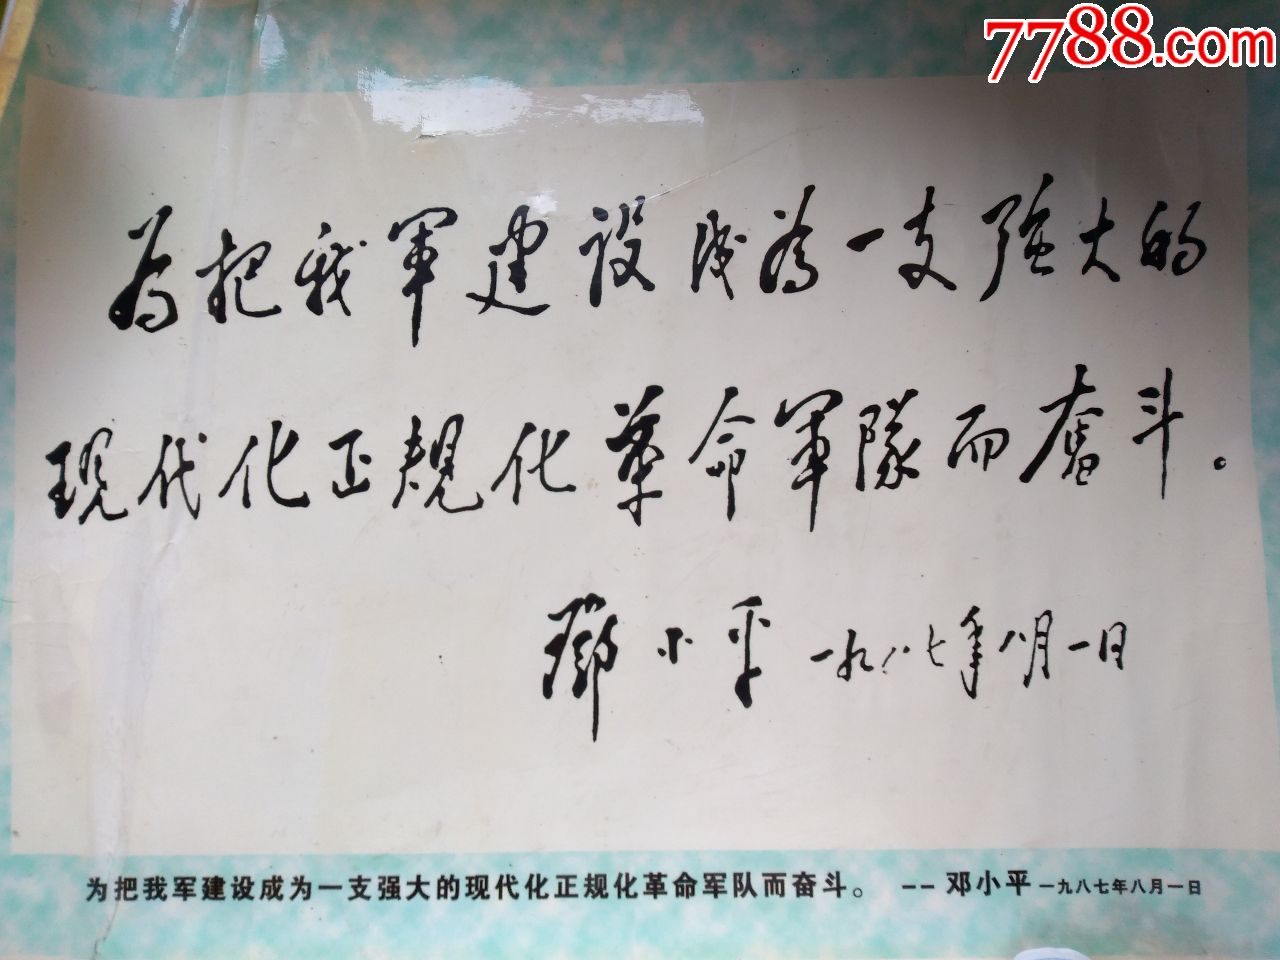 7788.com
为把我軍建设成為一支强大的
现代化正规化革命軍隊而奮斗。
鄧小平 一九八七年八月一日
为把我军建设成为一支强大的现代化正规化革命军队而奋斗。 --邓小平一九八七年八月一日